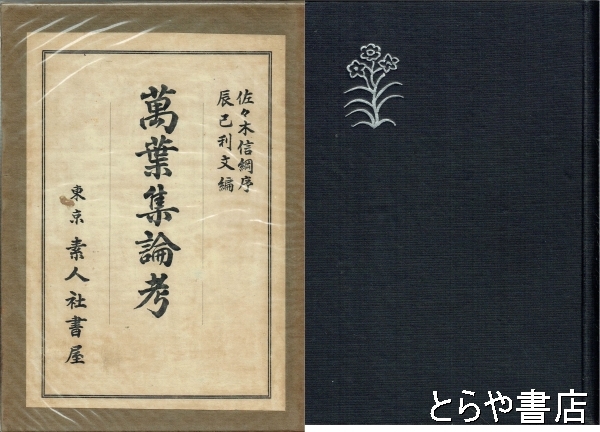 佐々木信綱序
辰已利文編
萬葉集論考
東京 素人社書屋
とらや書店